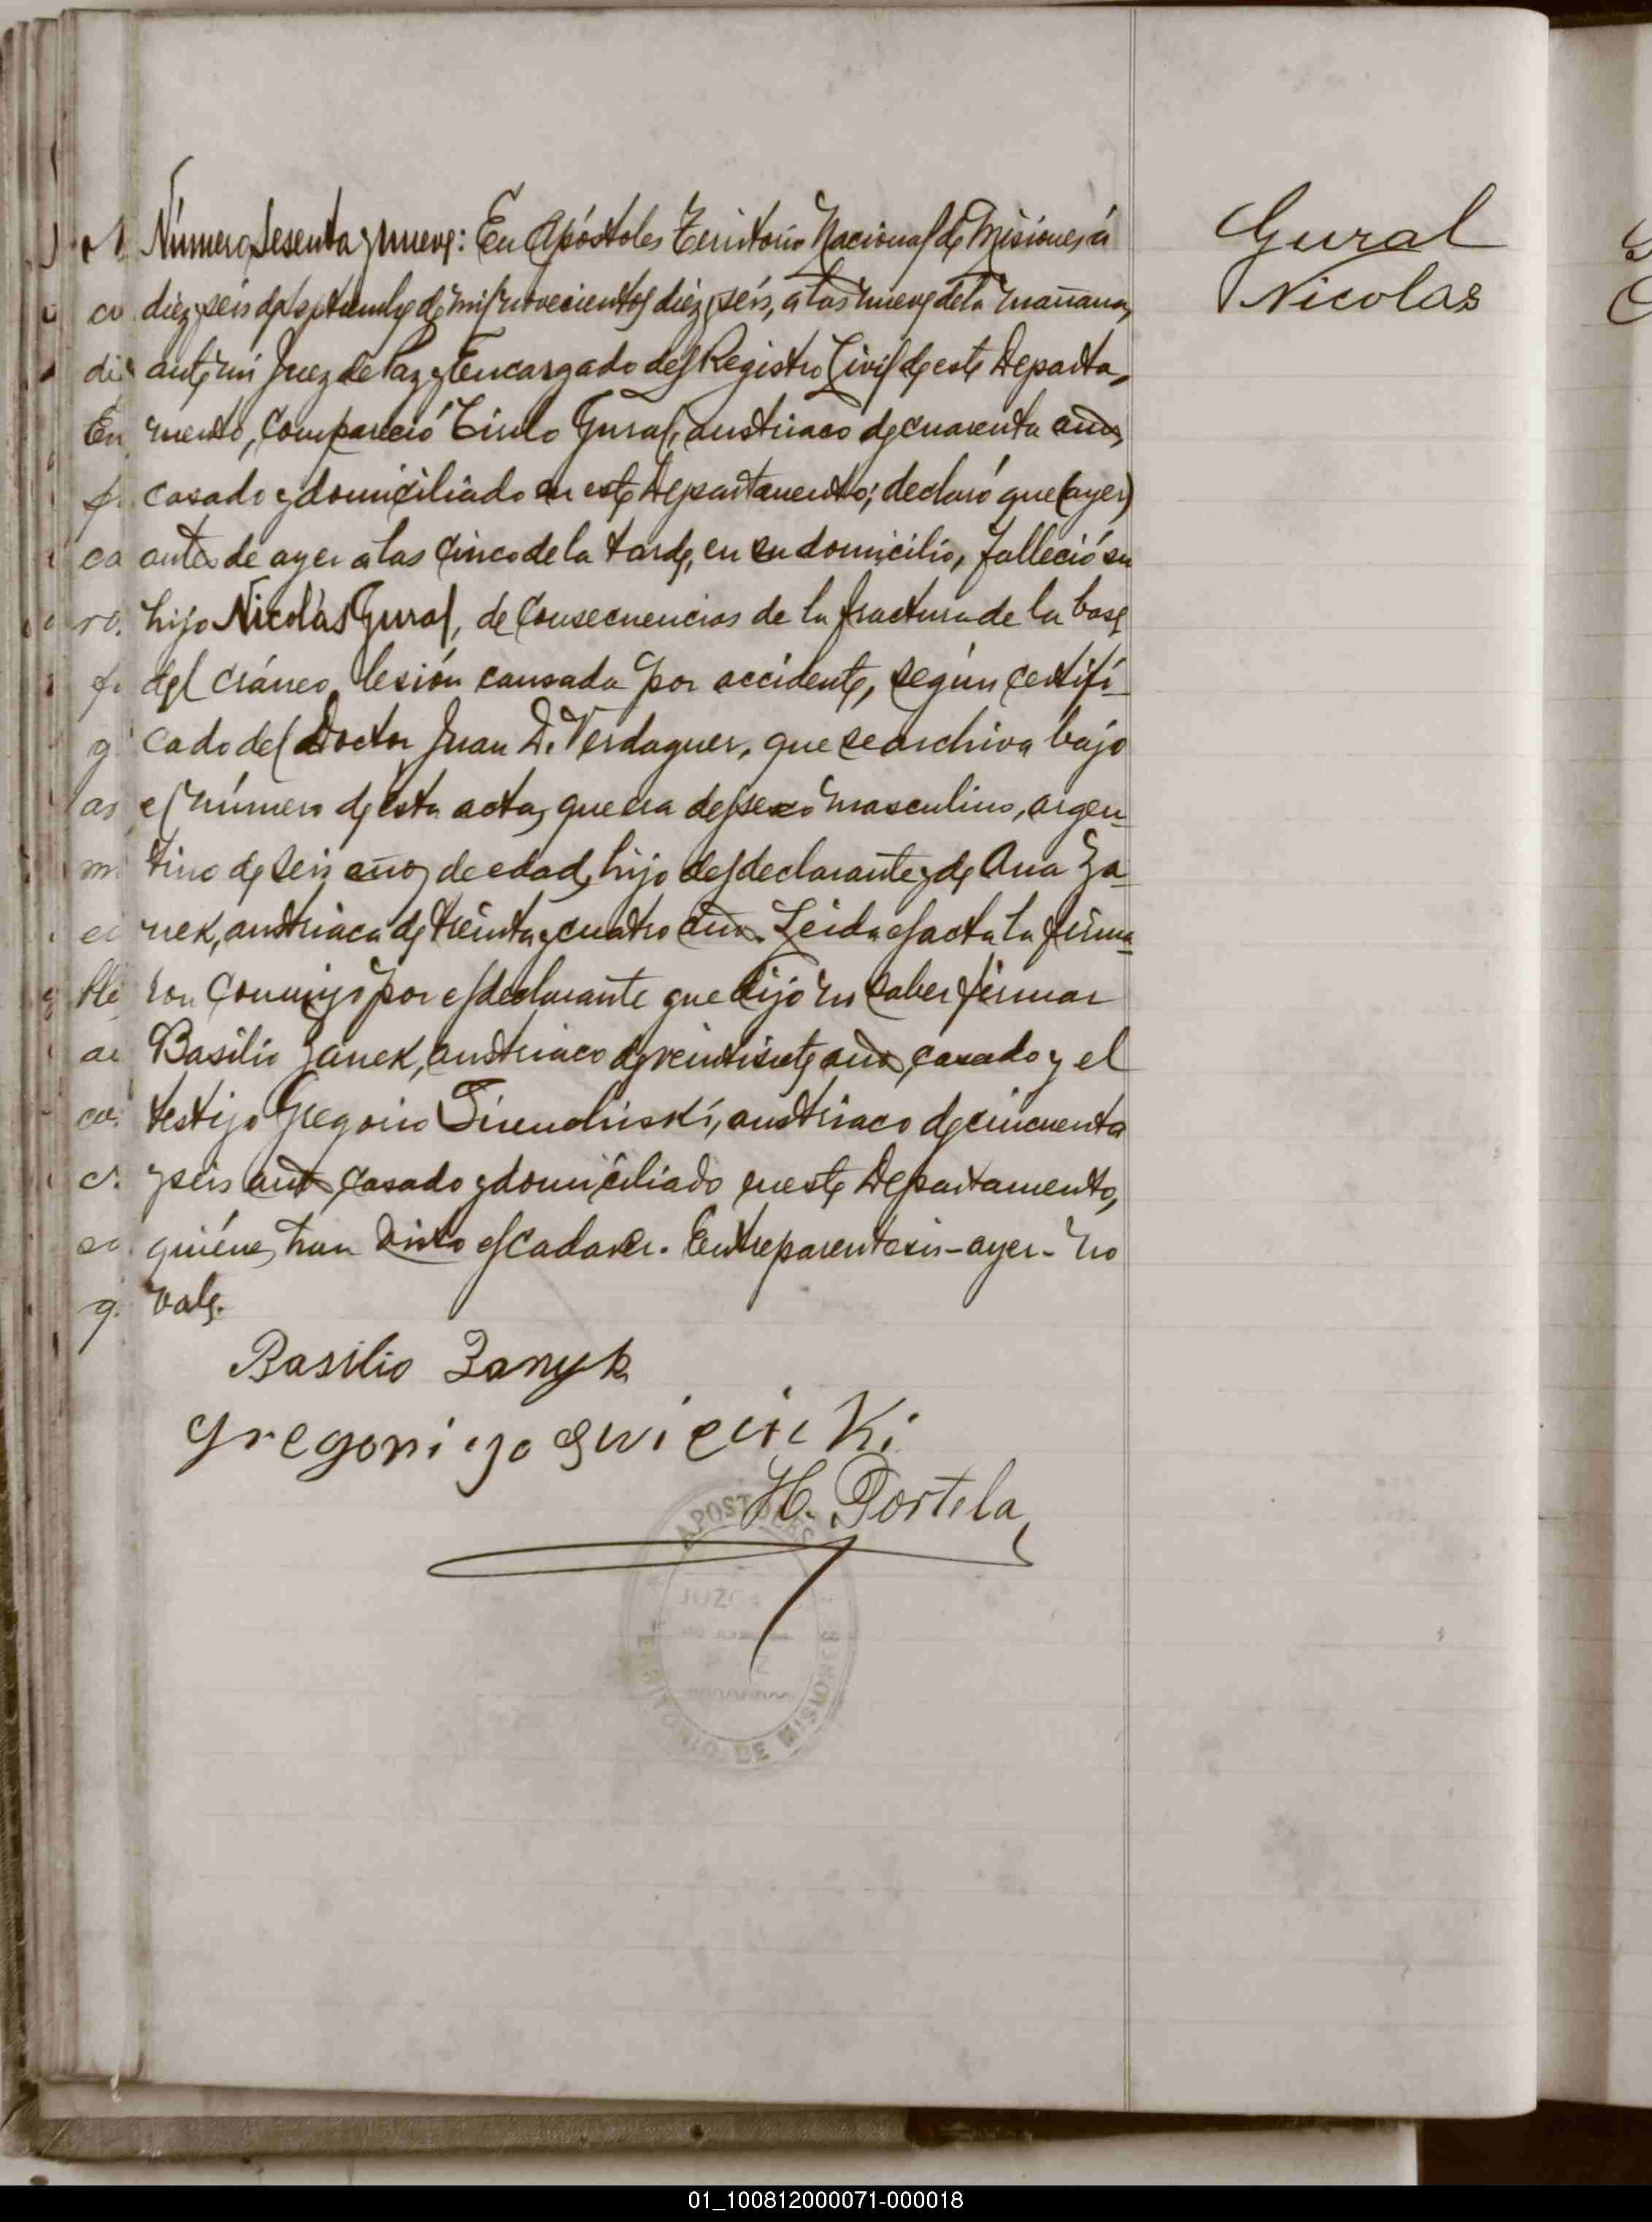 Gural
Nicolas
Número sesenta y nueve: En Apóstoles Territorio Nacional de Misiones, á
diez y seis de septiembre de mil novecientos diez y seis, a las nueve de la mañana,
ante mí Juez de Paz y Encargado del Registro Civil de este Departa-
mento, compareció Gural, austriaco de cuarenta años,
casado y domiciliado en este Departamento; declaró que (ayer)
antes de ayer a las cinco de la tarde, en su domicilio, falleció su
hijo Nicolás Gural, de consecuencias de la fractura de la base
del cráneo, lesión causada por accidente, según certifi-
cado del Doctor Juan D. Verdaguer, que se archiva bajo
el número de esta acta, que era del sexo masculino, argen-
tino de seis años de edad, hijo del declarante y de Ana Za-
nek, austriaca de treinta y cuatro años. Leida el acta la firma-
ron conmigo por el declarante que dijo no saber firmar
Basilio Zanek, austriaco de veintisiete años, casado y el
testigo Gregorio austriaco de cincuenta
y seis años, casado y domiciliado en este Departamento,
quiénes han visto el cadaver. Entreparentesis-ayer-no
vale.
Basilio Zanyk
H. Portela
APOSTOLES
JUZGA
TERRITORIO DE MISIONES
01_100812000071-000018